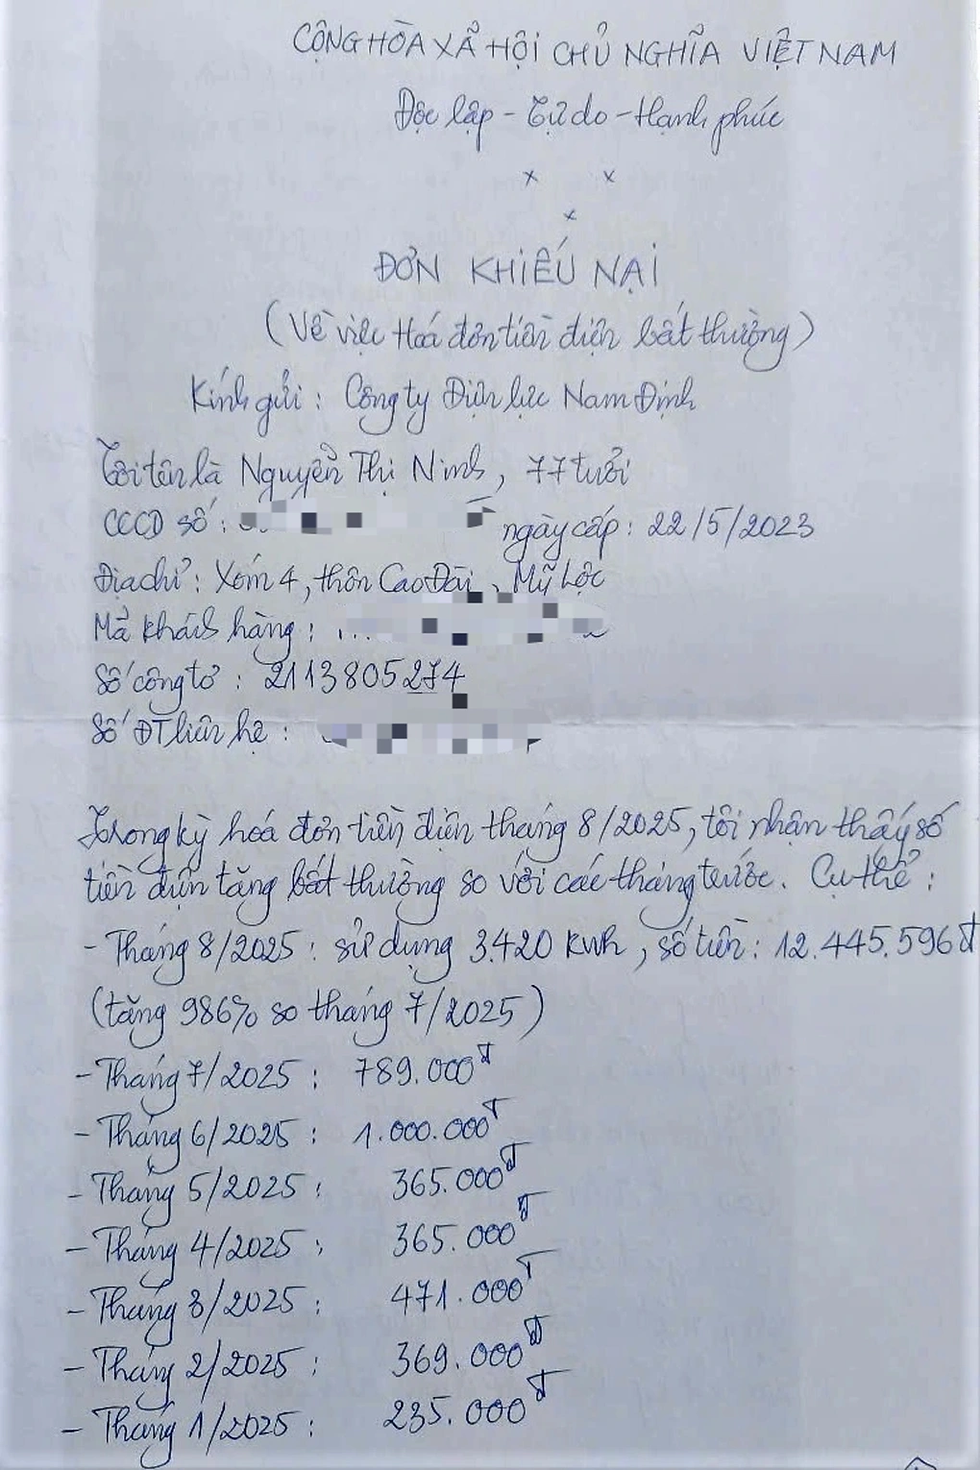 CỘNG HÒA XÃ HỘI CHỦ NGHĨA VIỆT NAM
Độc lập - Tự do - Hạnh phúc
x x
x
ĐƠN KHIẾU NẠI
(Về việc Hoá đơn tiền điện bất thường)
Kính gửi: Công ty Điện lực Nam Định
Tôi tên là Nguyễn Thị Ninh, 77 tuổi
CCCD số: ngày cấp: 22/5/2023
Địa chỉ: Xóm 4, thôn Cao Đài, Mỹ Lộc
Mã khách hàng:
Số công tơ: 2113805274
Số ĐT liên hệ:
Trong kỳ hoá đơn tiền điện tháng 8/2025, tôi nhận thấy số
tiền điện tăng bất thường so với các tháng trước. Cụ thể:
- Tháng 8/2025: sử dụng 3.420 kwh, số tiền: 12.445.596đ
(tăng 986% so tháng 7/2025)
- Tháng 7/2025: 789.000đ
- Tháng 6/2025: 1.000.000đ
- Tháng 5/2025: 365.000đ
- Tháng 4/2025: 365.000đ
- Tháng 3/2025: 471.000đ
- Tháng 2/2025: 369.000đ
- Tháng 1/2025: 235.000đ